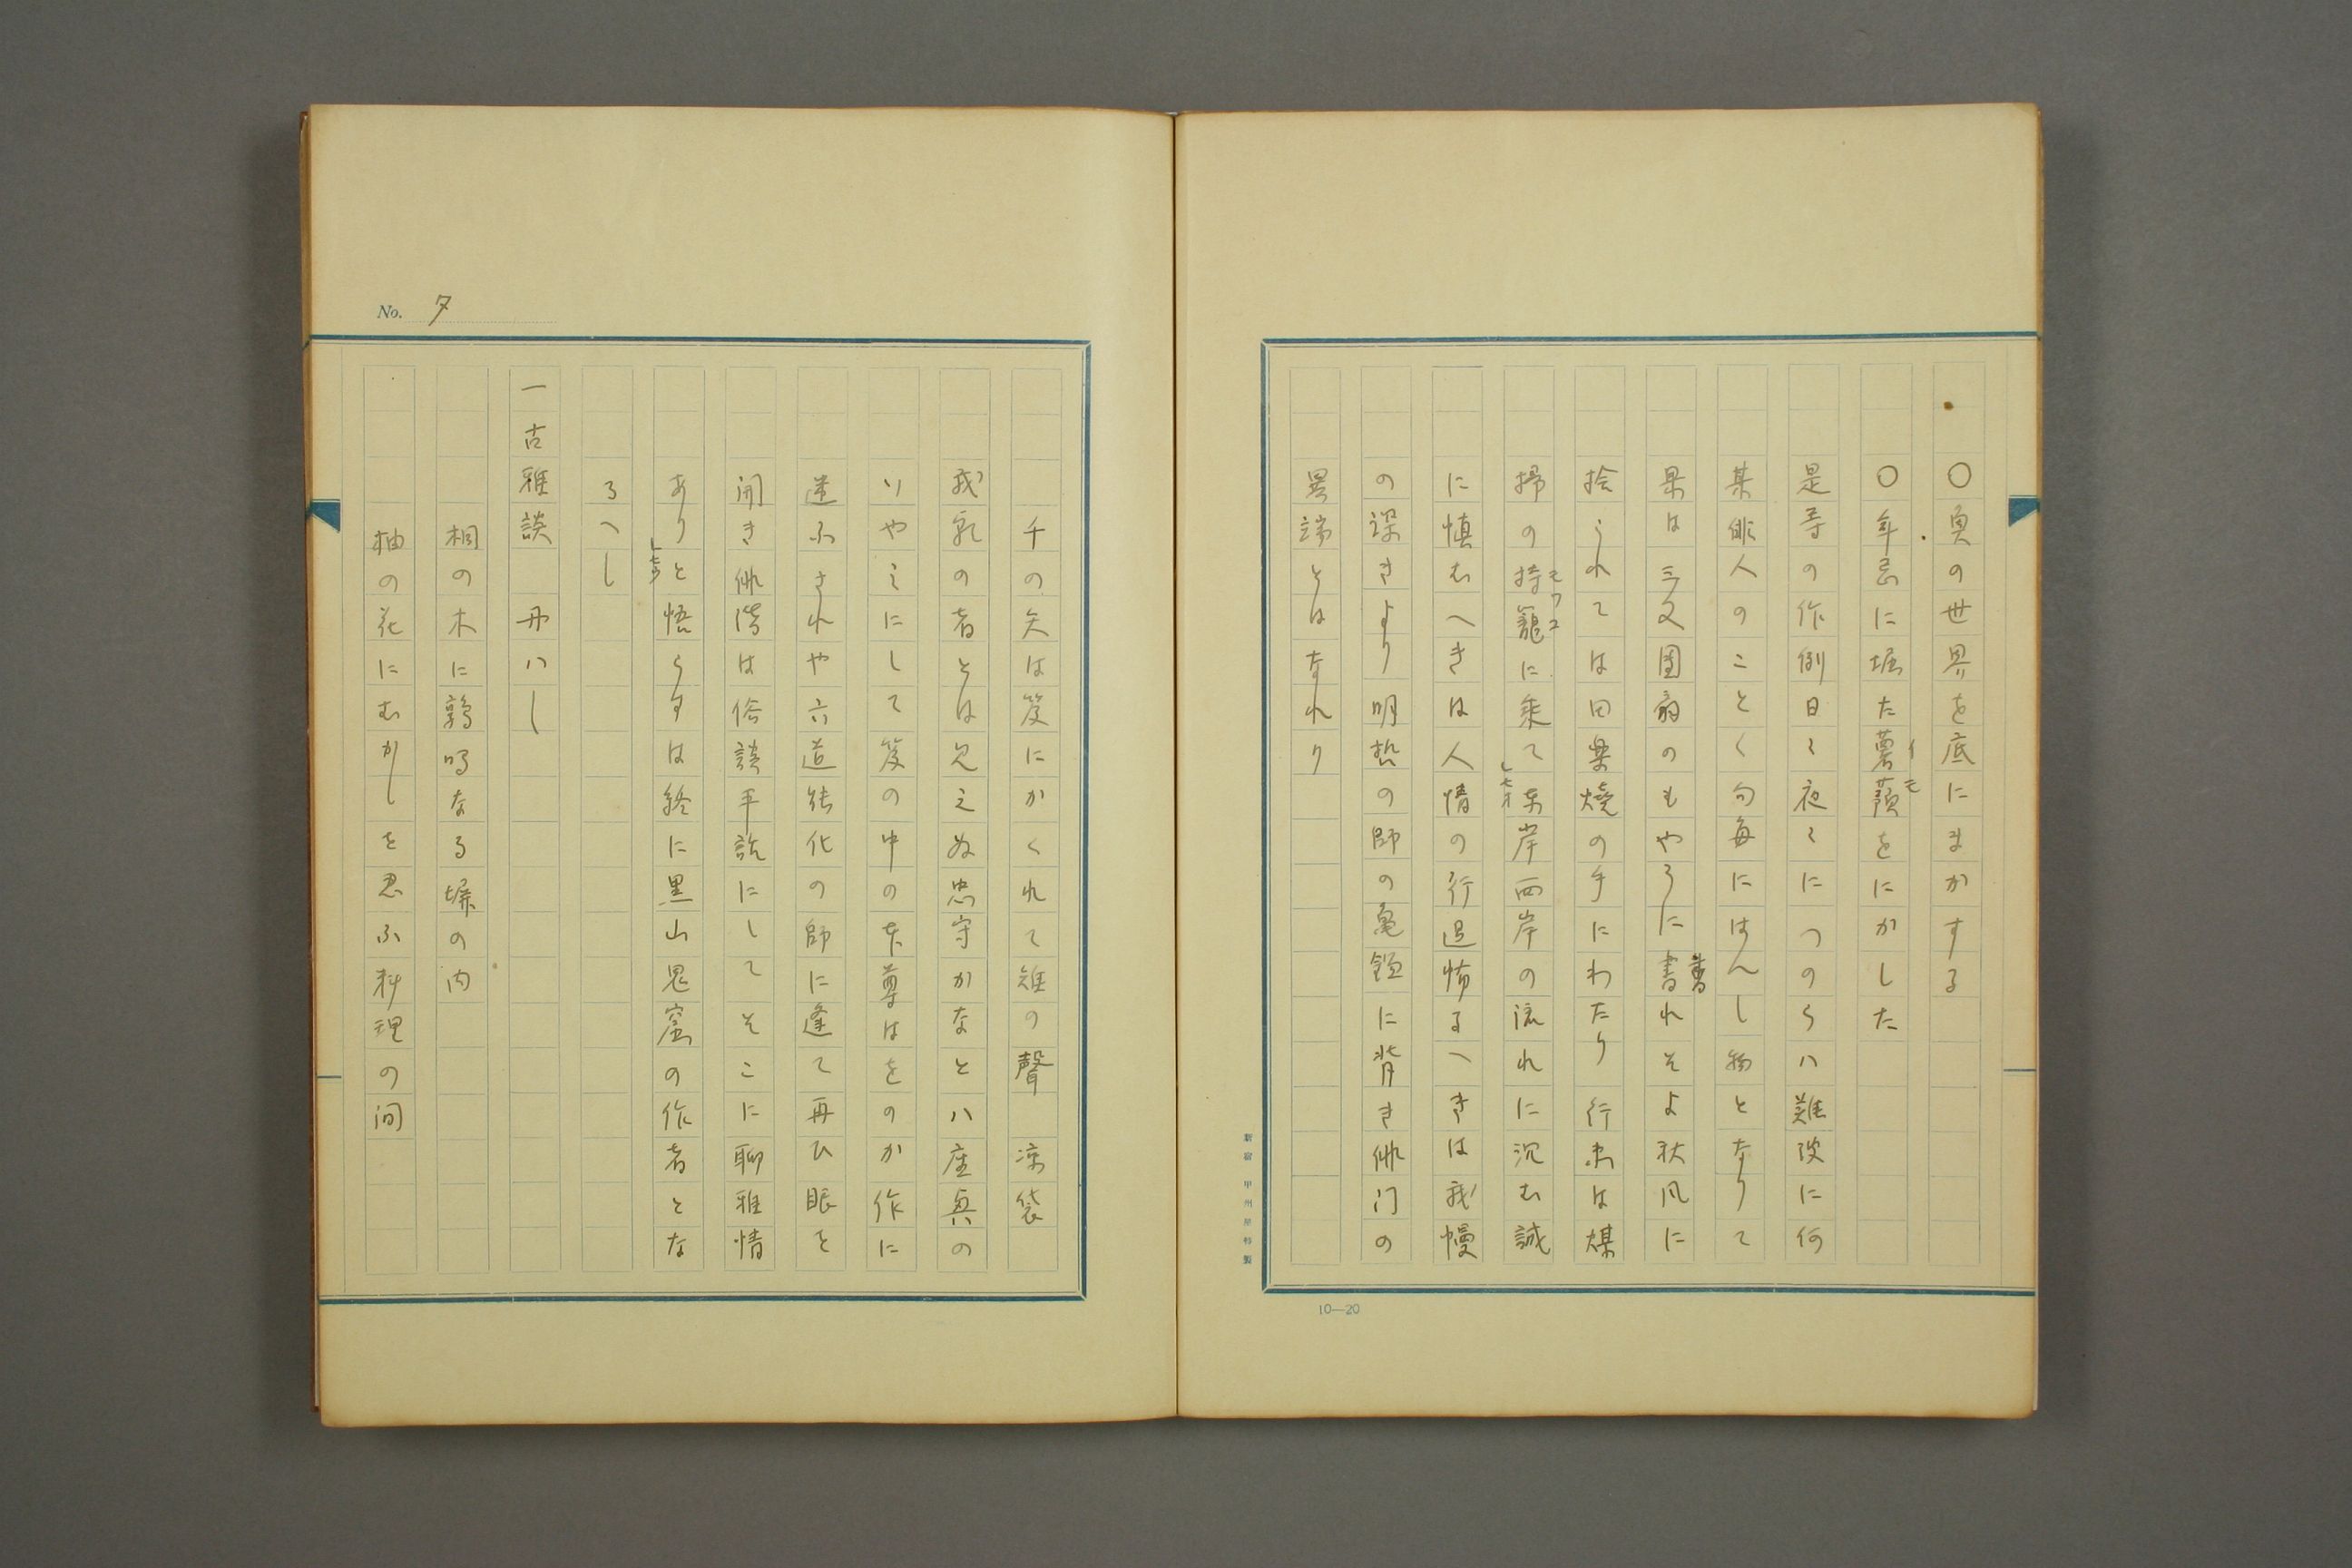 〇奥の世界を底にまかする
〇年忌に堀た薯蕷をにかした
イモ
是等の作例日〻夜〻につのらハ難陂に何
某俳人のことく句毎にはんし物となりて
果は三文團扇のもやうに書れそよ秋風に
書
捨られては田楽焼の手にわたり行末は煤
掃の持籠に乗て東岸西岸の流れに沉む誠
モツコ
に慎むへきは人情の行過怖るへきは我慢
の深きより明哲の師の亀鑑に背き俳门の
異端とはなれり
新宿 甲州屋特製
10—20
No. 夕
千の矢は笈にかくれて雉の聲 凉袋
我乳の者とは见えぬ忠守かなとハ座奥の
いやみにして笈の中の本尊はをのか作に
迷ふされや六道能化の師に逢て再ひ眼を
開き俳諧は俗談平説にしてそこに聊雅情
ありと悟らすは終に黒山鬼窟の作者とな
るへし
一古雅談 冊ハし
桐の木に鶉鳴なる塀の内
柚の花にむかしを忍ふ料理の间